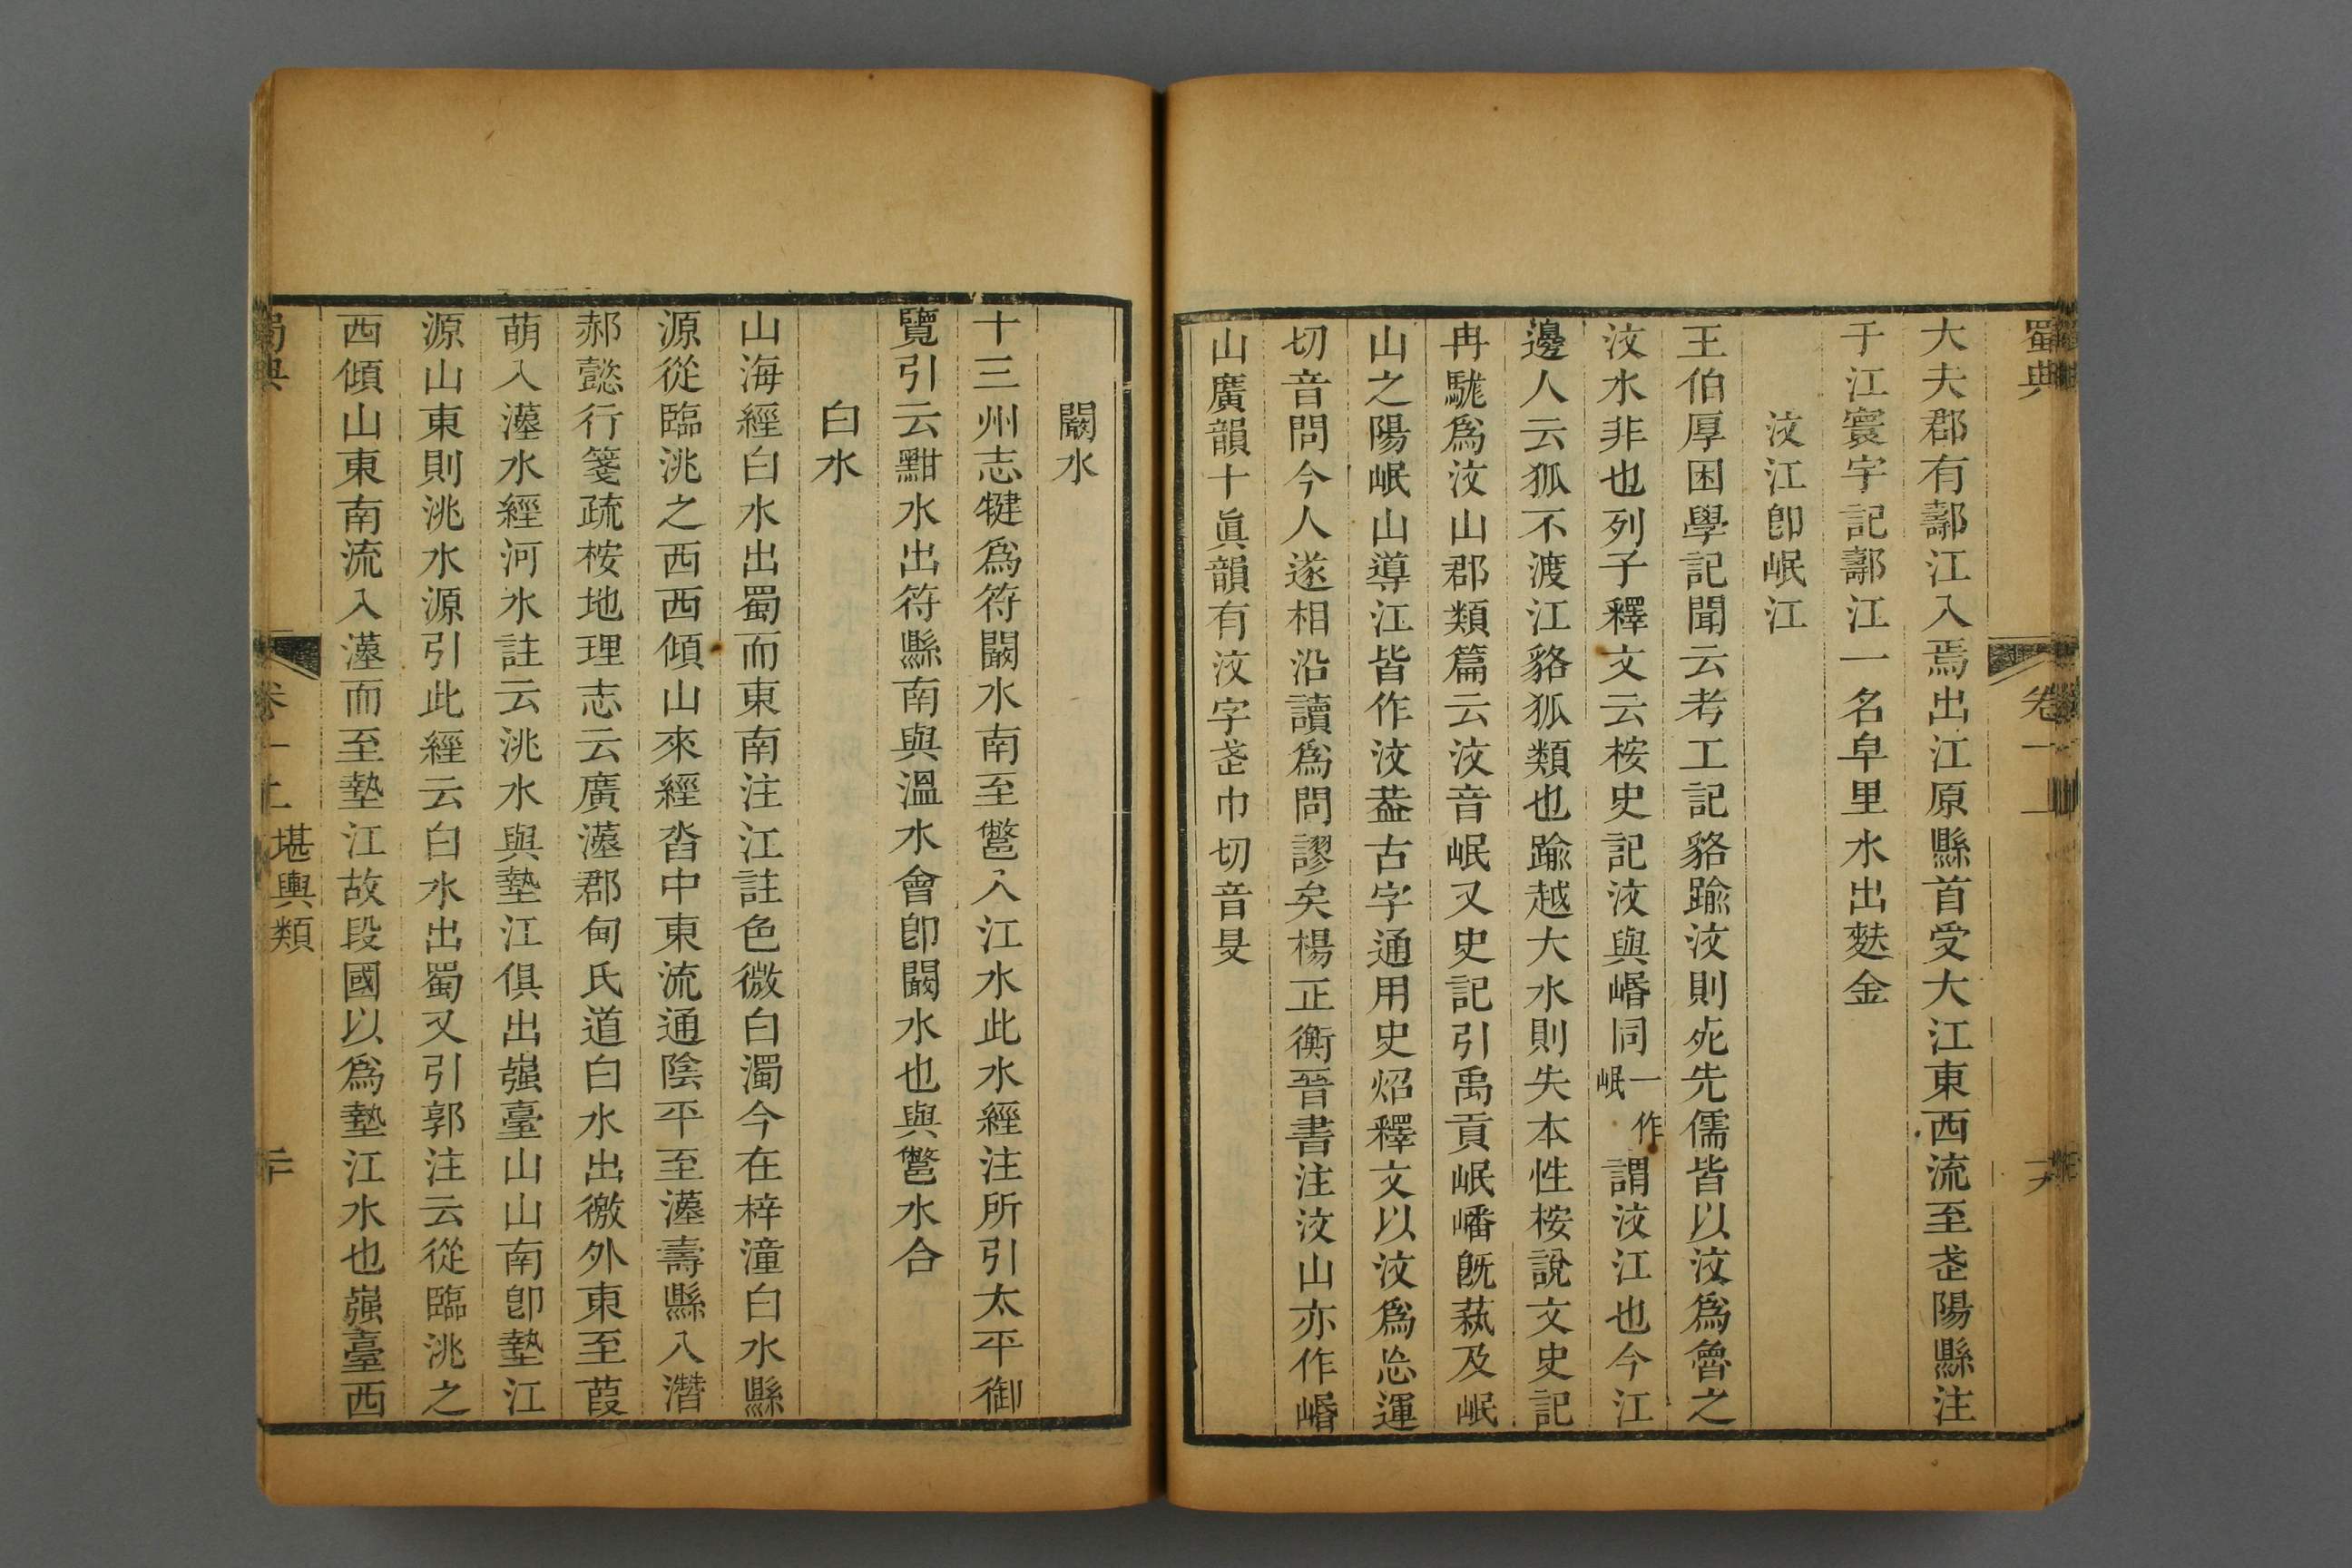 蜀典 卷一上
大夫郡有鄸江入焉出江原縣首受大江東西流至武陽縣注
于江寰宇記鄸江一名皁里水出麩金
汶江卽岷江
王伯厚困學記聞云考工記貉踰汶則死先儒皆以汶爲魯之
汶水非也列子釋文云桉史記汶與㟭同一作岷謂汶江也今江
邊人云狐不渡江貉狐類也踰越大水則失本性桉說文史記
冉駹爲汶山郡類篇云汶音岷又史記引禹貢岷嶓旣蓺及岷
山之陽岷山導江皆作汶葢古字通用史炤釋文以汶爲忩運
切音問今人遂相沿讀爲問謬矣楊正衡晉書注汶山亦作㟭
山廣韻十眞韻有汶字武巾切音旻
闞水
十三州志犍爲符闞水南至鄨入江水此水經注所引太平御
覽引云黚水出符縣南與溫水會卽闞水也與鄨水合
白水
山海經白水出蜀而東南注江註色微白濁今在梓潼白水縣
源從臨洮之西西傾山來經沓中東流通陰平至漢壽縣入潛
郝懿行箋疏桉地理志云廣漢郡甸氏道白水出徼外東至葭
萌入漢水經河水註云洮水與墊江俱出嵹臺山山南卽墊江
源山東則洮水源引此經云白水出蜀又引郭注云從臨洮之
西傾山東南流入漢而至墊江故段國以爲墊江水也嵹臺西
蜀典 卷一上 堪輿類